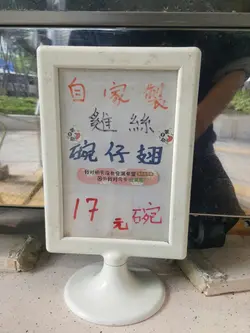 自家製
雞絲
碗仔翅
17元碗